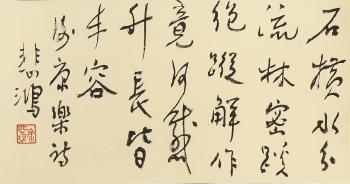 石橫水分
流林密蹊
絕蹤解作
竟何感
升長皆
丰容
謝康樂詩
悲鴻